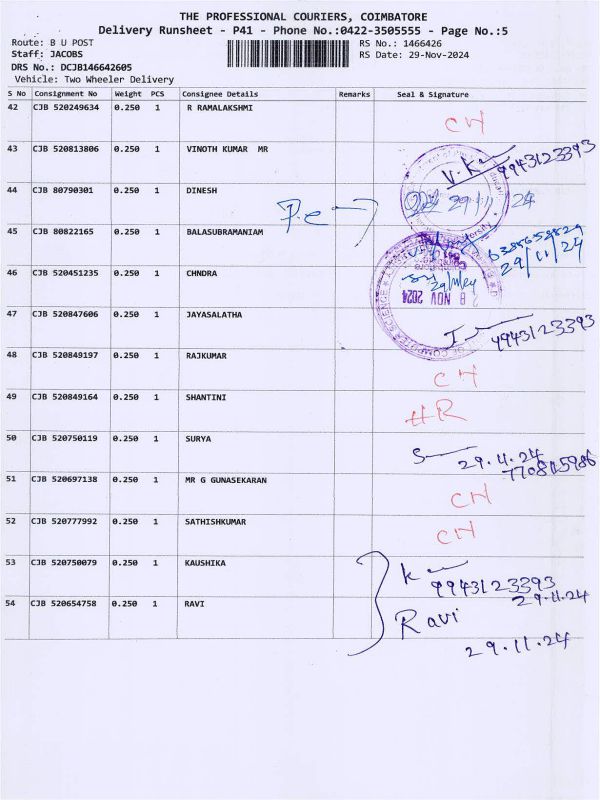 THE PROFESSIONAL COURIERS, COIMBATORE
Delivery Runsheet - P41 - Phone No.:0422-3505555 - Page No.:5
Route: B U POST RS No.: 1466426
Staff: JACOBS RS Date: 29-Nov-2024
DRS No.: DCJB146642605
Vehicle: Two Wheeler Delivery
S No Consignment No Weight PCS Consignee Details Remarks Seal & Signature
42 CJB 520249634 0.250 1 R RAMALAKSHMI
CH
43 CJB 520813806 0.250 1 VINOTH KUMAR MR
V.K 9943123393
44 CJB 80790301 0.250 1 DINESH
29/11/24
45 CJB 80822165 0.250 1 BALASUBRAMANIAM
29/11/24
46 CJB 520451235 0.250 1 CHNDRA
28 NOV 2024
47 CJB 520847606 0.250 1 JAYASALATHA
9943123393
48 CJB 520849197 0.250 1 RAJKUMAR
CH
49 CJB 520849164 0.250 1 SHANTINI
HR
50 CJB 520750119 0.250 1 SURYA
S 29.4.24
51 CJB 520697138 0.250 1 MR G GUNASEKARAN
CH
52 CJB 520777992 0.250 1 SATHISHKUMAR
CH
53 CJB 520750079 0.250 1 KAUSHIKA
K 9943123393
29.11.24
54 CJB 520654758 0.250 1 RAVI
Ravi
29.11.24